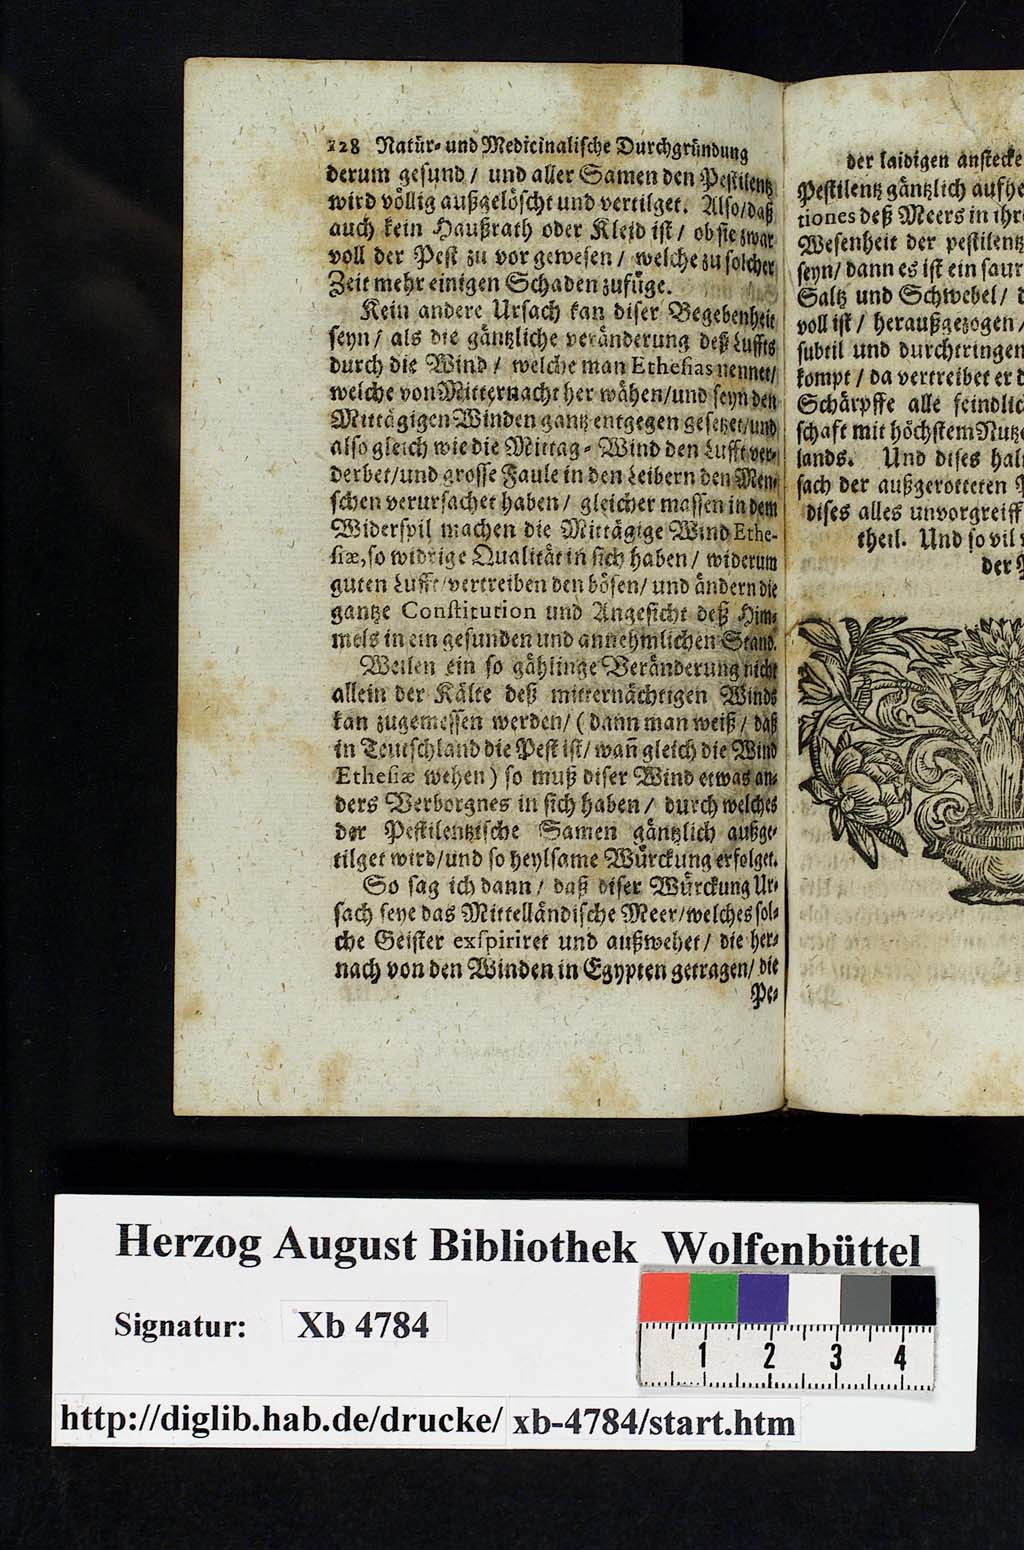 228 Natür- und Medicinalische Durchgründung
derum gesund / und aller Samen den Pestilentz
wird völlig außgelöscht und vertilget. Also/daß
auch kein Haußrath oder Kleid ist / ob sie zwar
voll der Pest zu vor gewesen / welche zu solcher
Zeit mehr einigen Schaden zufüge.
Kein andere Ursach kan diser Begebenheit
seyn / als die gäntzliche veränderung deß Luffts
durch die Wind / welche man Ethesias nennet/
welche von Mitternacht her wähen/und seyn den
Mittägigen Winden gantz entgegen gesetzet/und
also gleich wie die Mittag- Wind den Lufft ver-
derbet/und grosse Faule in den Leibern den Men-
schen verursachet haben / gleicher massen in dem
Widerspil machen die Mittägige Wind Ethe-
siæ, so widrige Qualität in sich haben / widerum
guten Lufft/vertreiben den bösen/ und ändern die
gantze Constitution und Angesicht deß Him-
mels in ein gesunden und annehmlichen Stand.
Weilen ein so gählinge Veränderung nicht
allein der Kälte deß mitternächtigen Winds
kan zugemessen werden/ ( dann man weiß / daß
in Teutschland die Pest ist/ wañ gleich die Wind
Ethesiæ wehen ) so muß diser Wind etwas an-
ders Verborgnes in sich haben / durch welches
der Pestilentzische Samen gäntzlich außge-
tilget wird/und so heylsame Würckung erfolget.
So sag ich dann / daß diser Würckung Ur-
sach seye das Mittelländische Meer/welches sol-
che Geister exspiriret und außwehet / die her-
nach von den Winden in Egypten getragen/ die
Pe-
der laidigen anstecke
Pestilentz gäntzlich aufhe
tiones deß Meers in ihr
Wesenheit der pestilentz
seyn/ dann es ist ein saur
Saltz und Schwebel / d
voll ist / heraußgezogen /
subtil und durchtringen
kompt / da vertreibet er d
Schärpffe alle feindlic
schaft mit höchstem Nutze
lands. Und dises halt
sach der außgerotteten P
dises alles unvorgreiff
theil. Und so vil v
der P
Herzog August Bibliothek Wolfenbüttel
Signatur: Xb 4784
1 2 3 4
http://diglib.hab.de/drucke/ xb-4784/start.htm